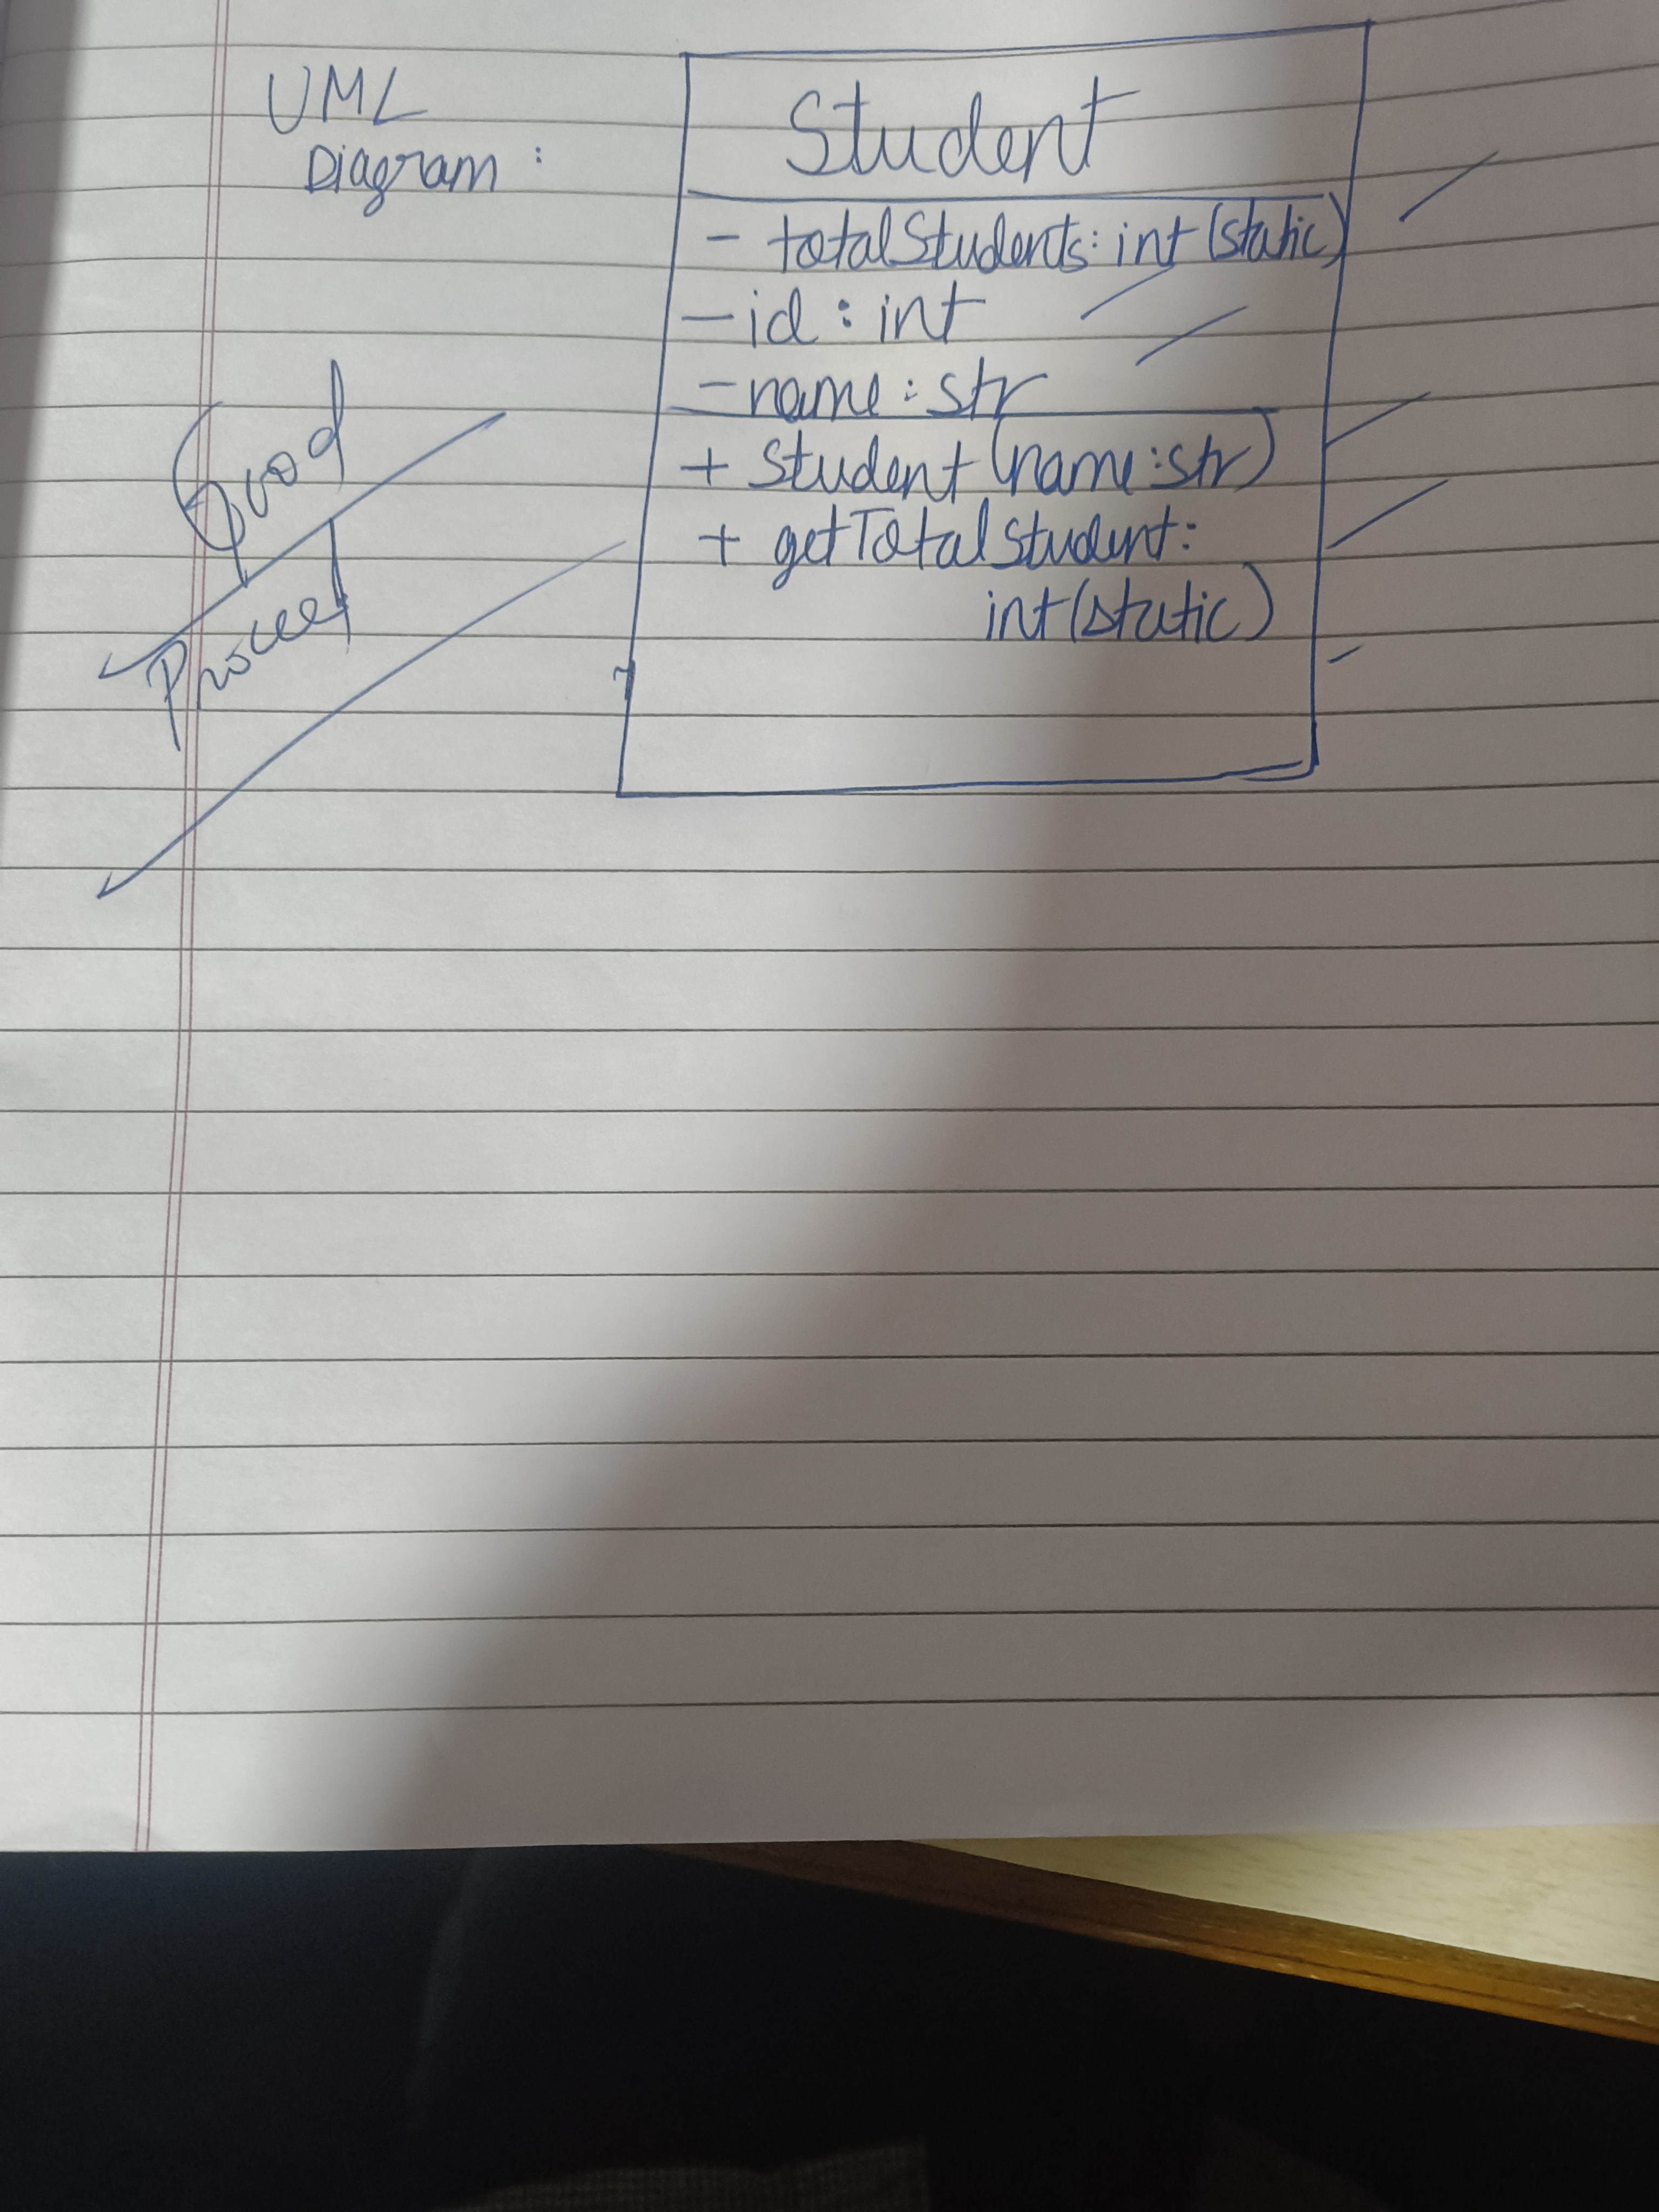 UML
Diagram :
Student
- totalStudents: int (static)
- id : int
- name : str
+ Student (name:str)
+ getTotalStudent:
int (static)
Good
Proceed